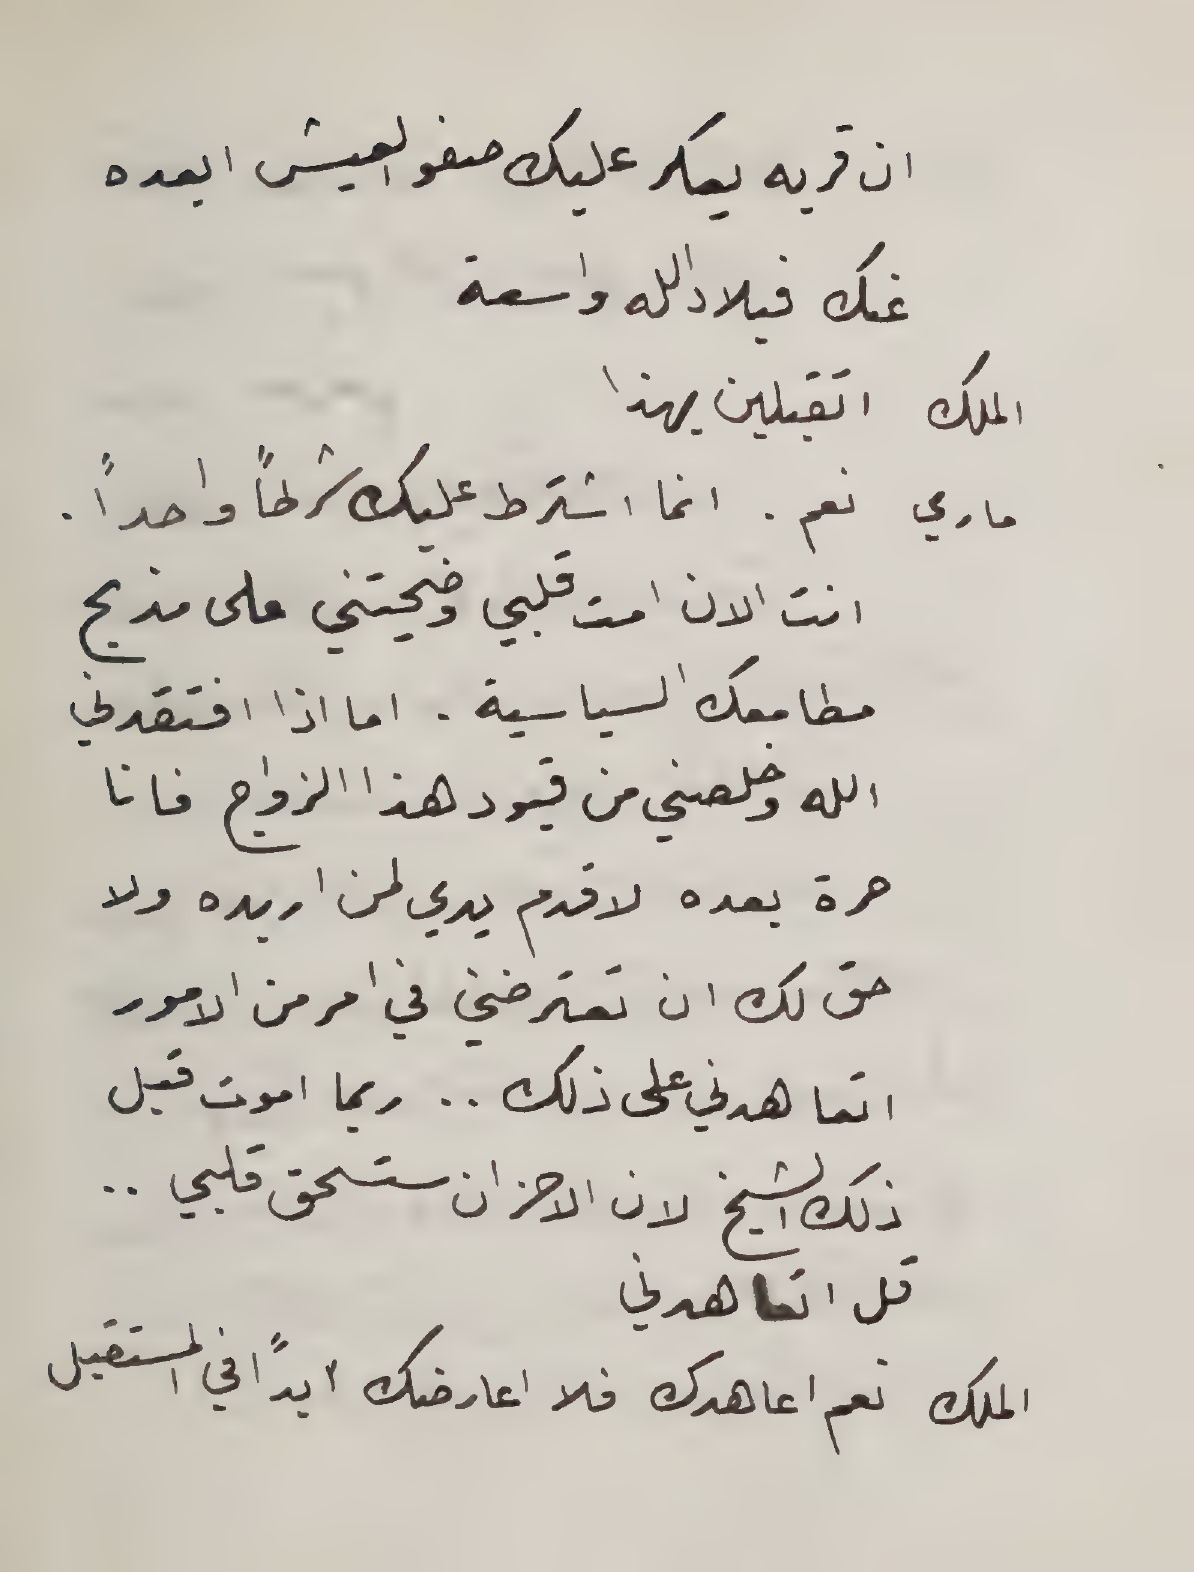 ان قربه يعكر عليك صفو العيش ابعده
عنك فبلاد الله واسعة
الملك اتقبلين بهذا
ماري نعم . انما اشترط عليك شرطاً واحداً .
انت الان امت قلبي وضحيتني على مذبح
مطامعك السياسية . اما اذا افتقدني
الله وخلصني من قيود هذا الزواج فانا
حرة بعده لاقدم يدي لمن اريده ولا
حق لك ان تعترضني في امر من الامور
اتعاهدني على ذلك .. ربما اموت قبل
ذلك الشيخ لان الاحزان ستسحق قلبي ..
قل اتعاهدني
الملك نعم اعاهدك فلا اعارضك ابداً في المستقبل